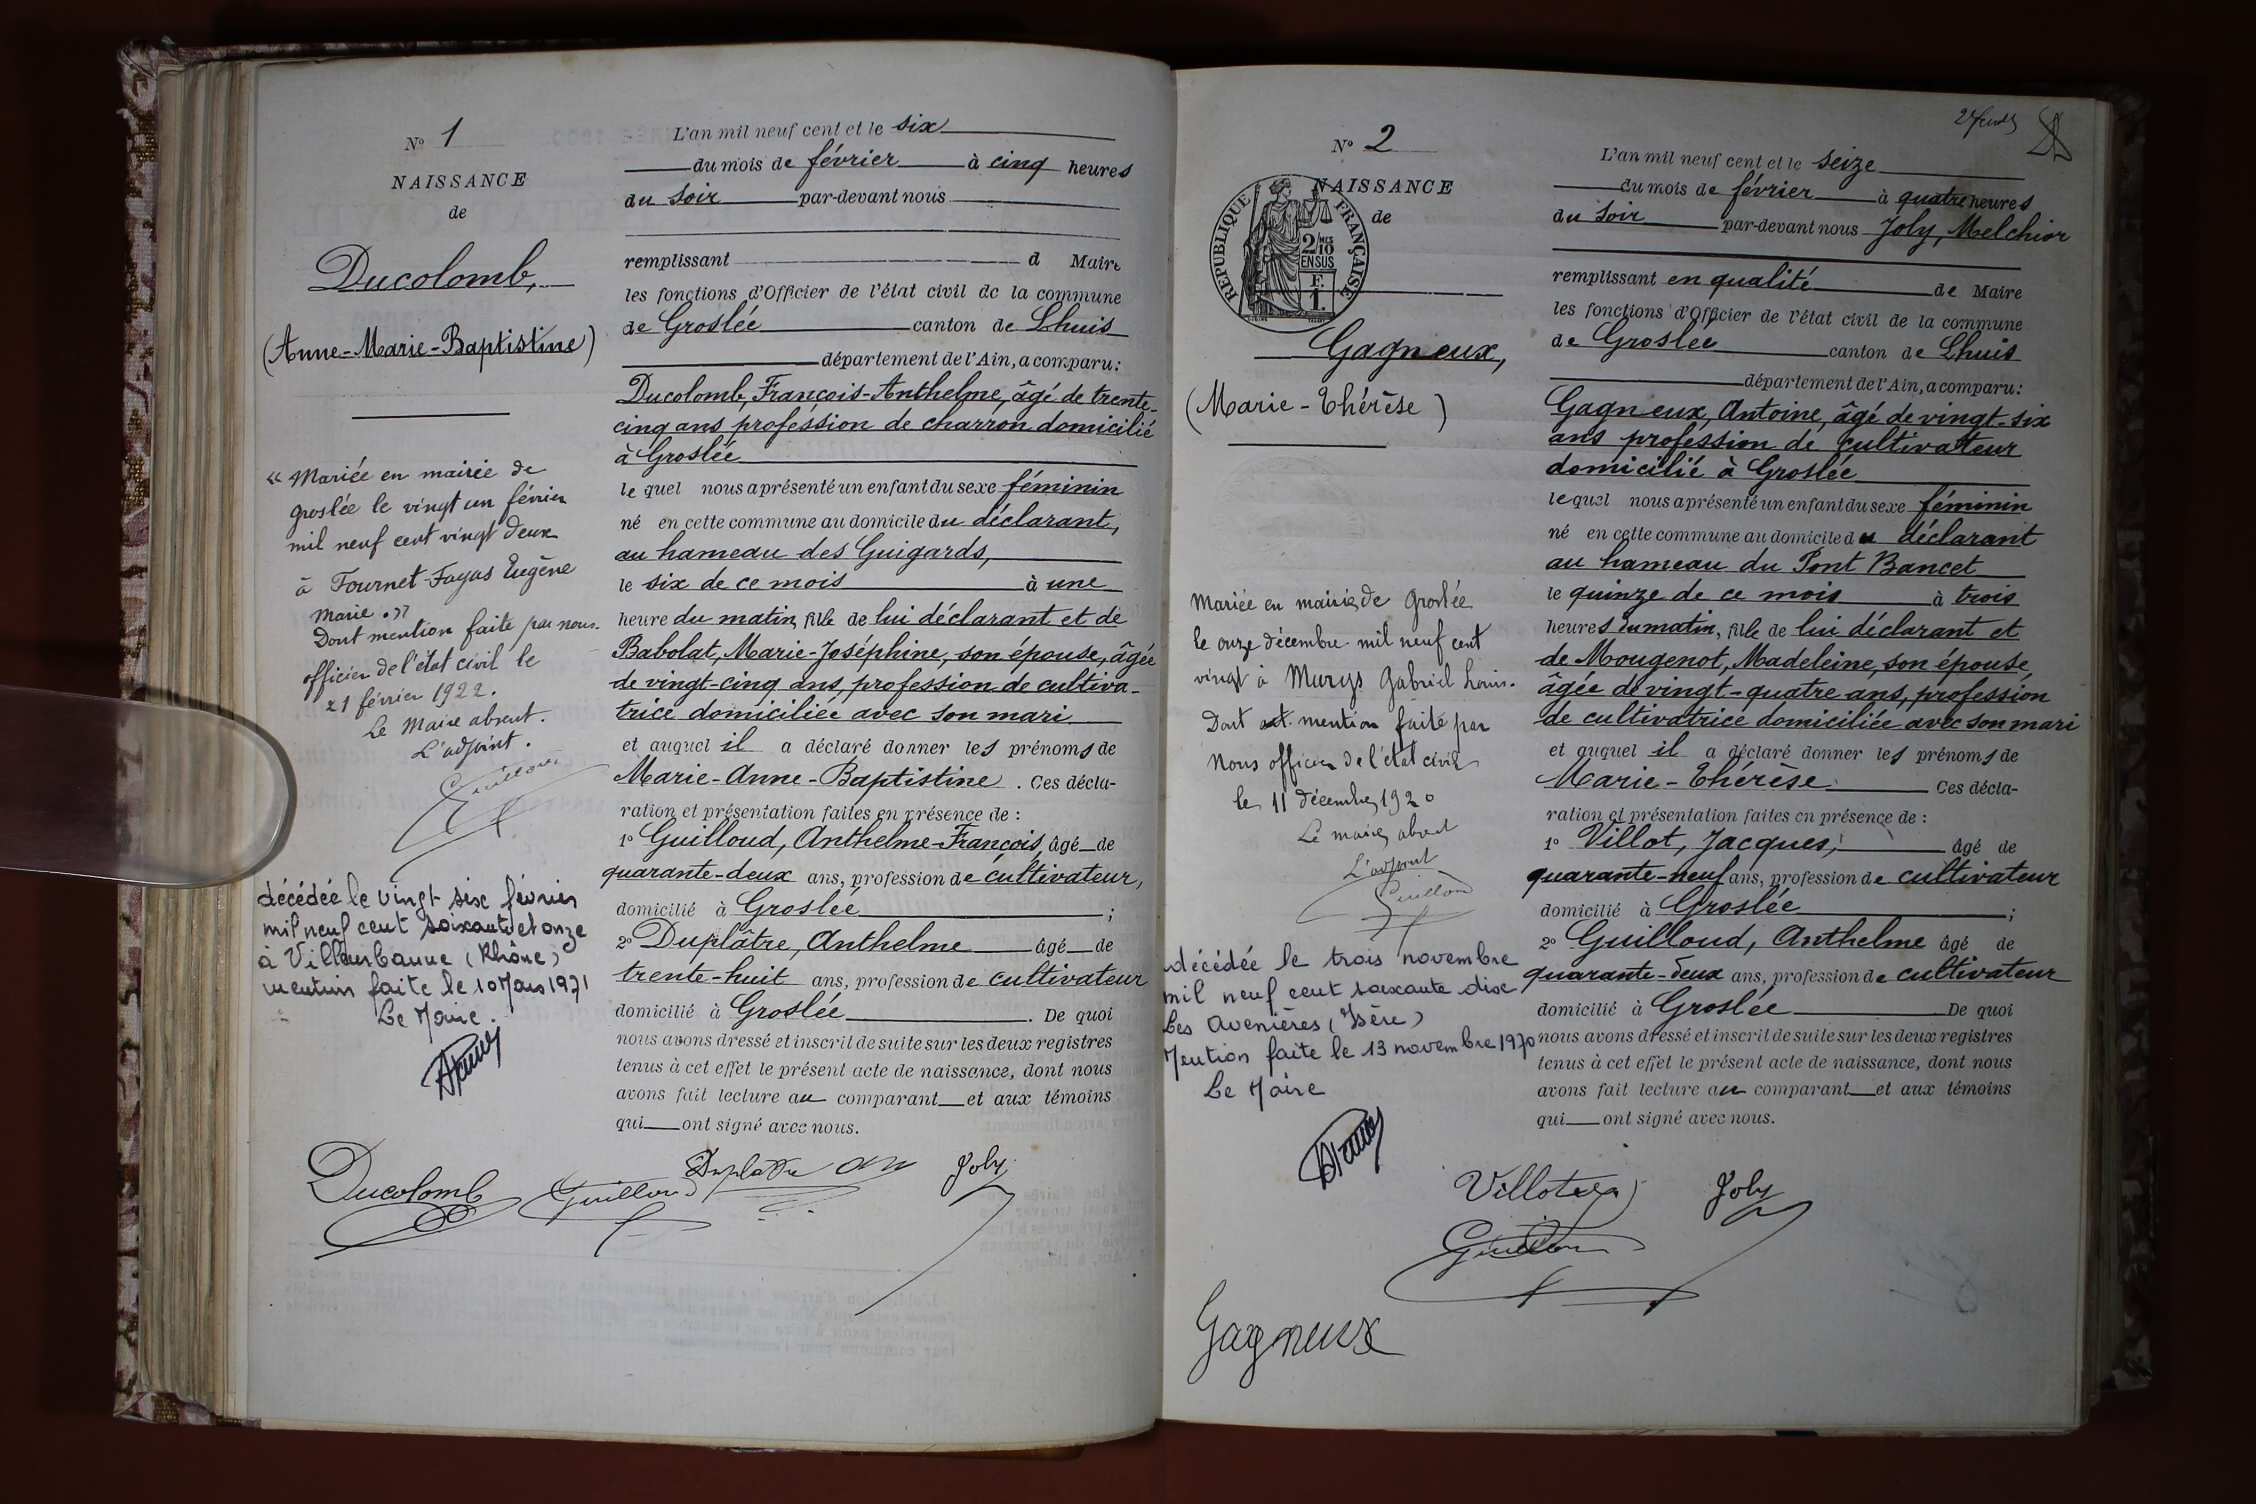 N° 1
NAISSANCE
de
Ducolomb,
(Anne-Marie-Baptistine)
« Mariée en mairie de
groslée le vingt un février
mil neuf cent vingt deux
à Fournet-Fayas Eugène
Marie. »
Dont mention faite par nous.
officier de l'état civil le
21 février 1922.
Le Maire absent.
L'adjoint.
Guilloud
décédée le vingt six février
mil neuf cent soixante et onze
à Villeurbanne (Rhône)
mention faite le 10 Mars 1971
Le Maire.
L'an mil neuf cent et le six
du mois de février à cinq heures
du soir par-devant nous
remplissant d Maire
les fonctions d'Officier de l'état civil de la commune
de Groslée canton de Lhuis
département de l'Ain, a comparu:
Ducolomb, François-Anthelme, âgé de trente-
cinq ans, profession de charron domicilié
à Groslée
le quel nous a présenté un enfant du sexe féminin
né en cette commune au domicile du déclarant,
au hameau des Guigards,
le six de ce mois à une
heure du matin, fille de lui déclarant et de
Babolat, Marie-Joséphine, son épouse, âgée
de vingt-cinq ans, profession de cultiva-
trice domiciliée avec son mari
et auquel il a déclaré donner les prénoms de
Marie-Anne-Baptistine. Ces décla-
ration et présentation faites en présence de :
1° Guilloud, Anthelme-François, âgé de
quarante-deux ans, profession de cultivateur,
domicilié à Groslée ;
2° Duplâtre, Anthelme âgé de
trente-huit ans, profession de cultivateur
domicilié à Groslée. De quoi
nous avons dressé et inscrit de suite sur les deux registres
tenus à cet effet le présent acte de naissance, dont nous
avons fait lecture au comparant et aux témoins
qui ont signé avec nous.
Ducolomb Guilloud Duplatre Joly
N° 2
NAISSANCE
de
RÉPUBLIQUE FRANÇAISE
2/10 MES
EN SUS
F.
1.
Gagneux,
(Marie-Thérèse)
Mariée en mairie de Groslée
le onze décembre mil neuf cent
vingt à Murys Gabriel Louis.
Dont mention faite par
Nous officier de l'état civil
le 11 décembre 1920
Le maire absent
L'adjoint
Guilloud
décédée le trois novembre
mil neuf cent soixante dix
Les Avenières (Isère)
Mention faite le 13 novembre 1970
Le Maire
L'an mil neuf cent et le seize
du mois de février à quatre heures
du soir par-devant nous Joly, Melchior
remplissant en qualité de Maire
les fonctions d'Officier de l'état civil de la commune
de Groslée canton de Lhuis
département de l'Ain, a comparu:
Gagneux, Antoine, âgé de vingt-six
ans profession de cultivateur
domicilié à Groslée
le quel nous a présenté un enfant du sexe féminin
né en cette commune au domicile du déclarant
au hameau du Pont Bancet
le quinze de ce mois à trois
heures du matin, fille de lui déclarant et
de Mougenot, Madeleine, son épouse,
âgée de vingt-quatre ans, profession
de cultivatrice domiciliée avec son mari
et auquel il a déclaré donner les prénoms de
Marie-Thérèse Ces décla-
ration et présentation faites en présence de :
1° Villot, Jacques, âgé de
quarante-neuf ans, profession de cultivateur
domicilié à Groslée ;
2° Guilloud, Anthelme âgé de
quarante-deux ans, profession de cultivateur
domicilié à Groslée De quoi
nous avons dressé et inscrit de suite sur les deux registres
tenus à cet effet le présent acte de naissance, dont nous
avons fait lecture au comparant et aux témoins
qui ont signé avec nous.
Joly
Guilloud
Gagneux